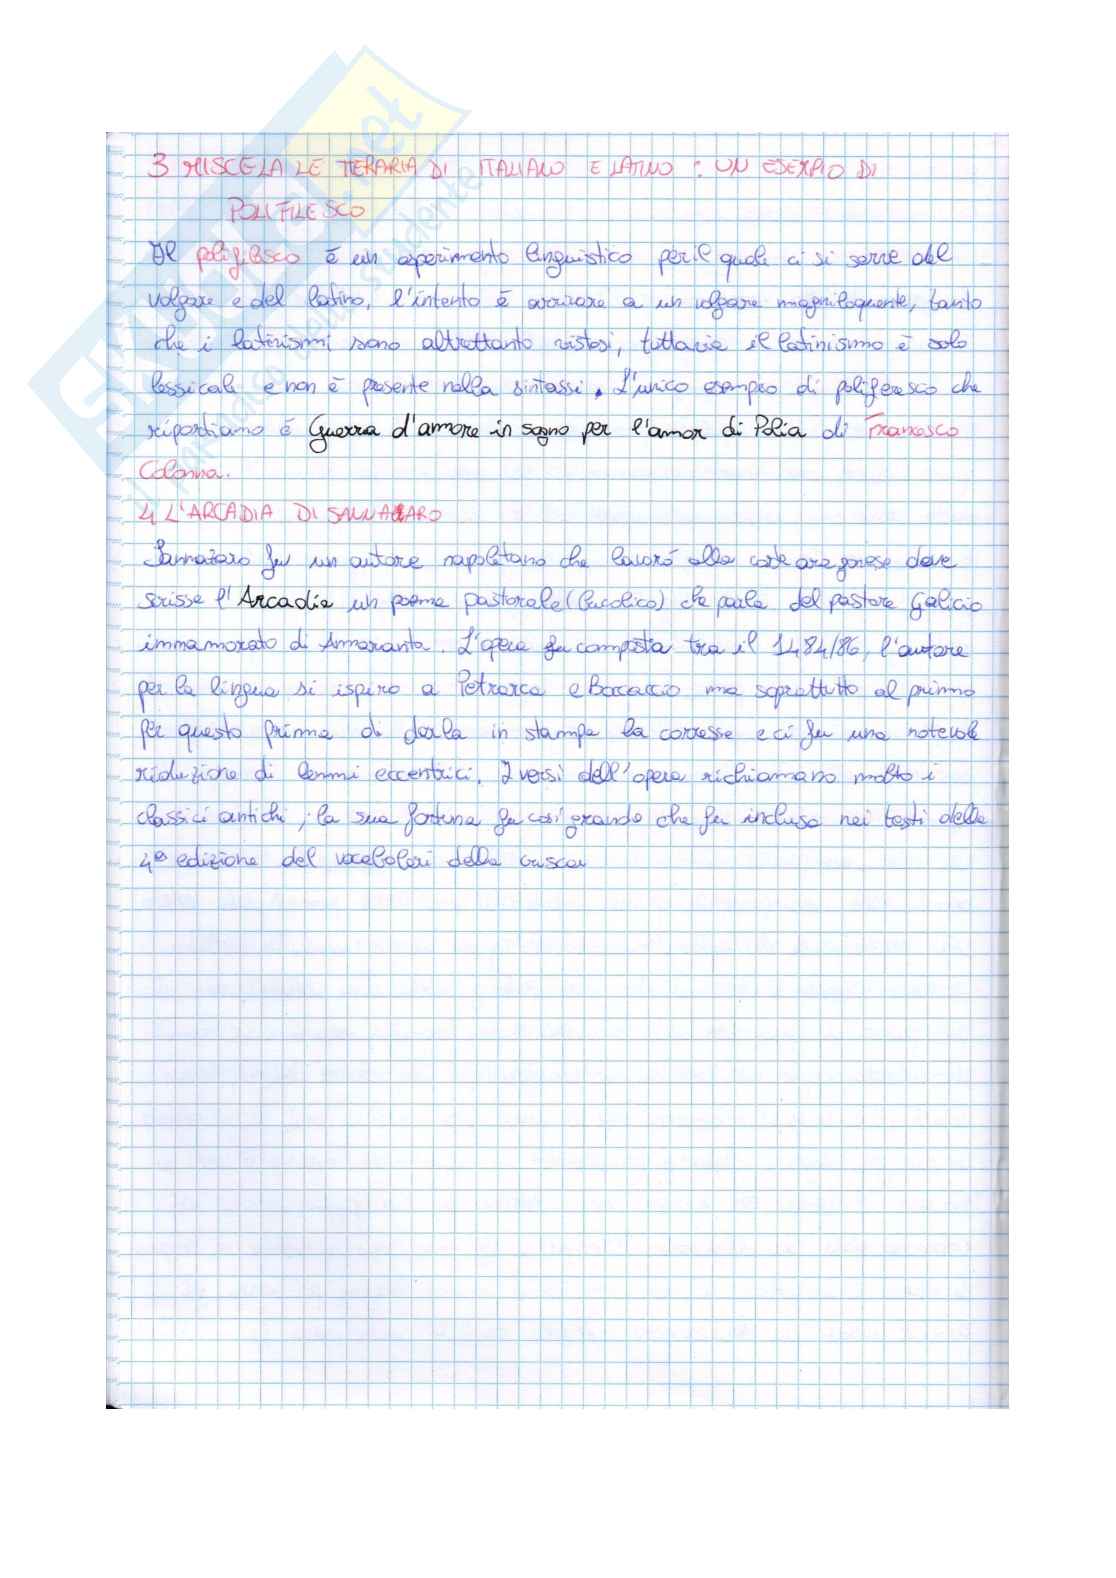 SKUOLA.net
il paradiso dello studente
3 MISCELA LETTERARIA DI ITALIANO E LATINO : UN ESEMPIO DI
POLIFILESCO
Il polifilesco è un esperimento linguistico per il quale ci si serve del
volgare e del latino, l'intento è arrivare a un volgare magniloquente, tanto
che i latinismi sono altrettanto vistosi, tuttavia il latinismo è solo
lessicale e non è presente nella sintassi. L'unico esempio di polifilesco che
riportiamo è Guerra d'amore in sogno per l'amor di Polia di Francesco
Colonna.
4 L'ARCADIA DI SANNAZARO
Sannazaro fu un autore napoletano che lavorò alla corte aragonese dove
scrisse l'Arcadia un poema pastorale (bucolico) che parla del pastore Galicio
immamorato di Ammaranta. L'opera fu composta tra il 1484/86, l'autore
per la lingua si ispiro a Petrarca e Boccaccio ma soprattutto al primo
per questo prima di darla in stampa la corresse e ci fu una notevole
riduzione di lemmi eccentrici. I versi dell'opera richiamano molto i
classici antichi, la sua fortuna fu così grande che fu inclusa nei testi della
4ª edizione del vocabolari della crusca